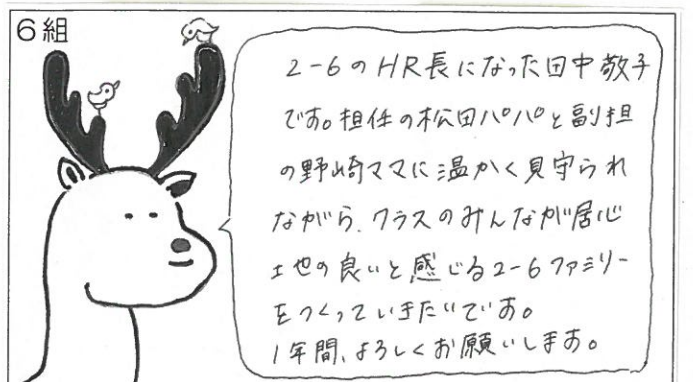 6組
2-6のHR長になった田中敬子
です。担任の松田パパと副担
の野崎ママに温かく見守られ
ながら、クラスのみんなが居心
地の良いと感じる2-6ファミリー
をつくっていきたいです。
1年間、よろしくお願いします。